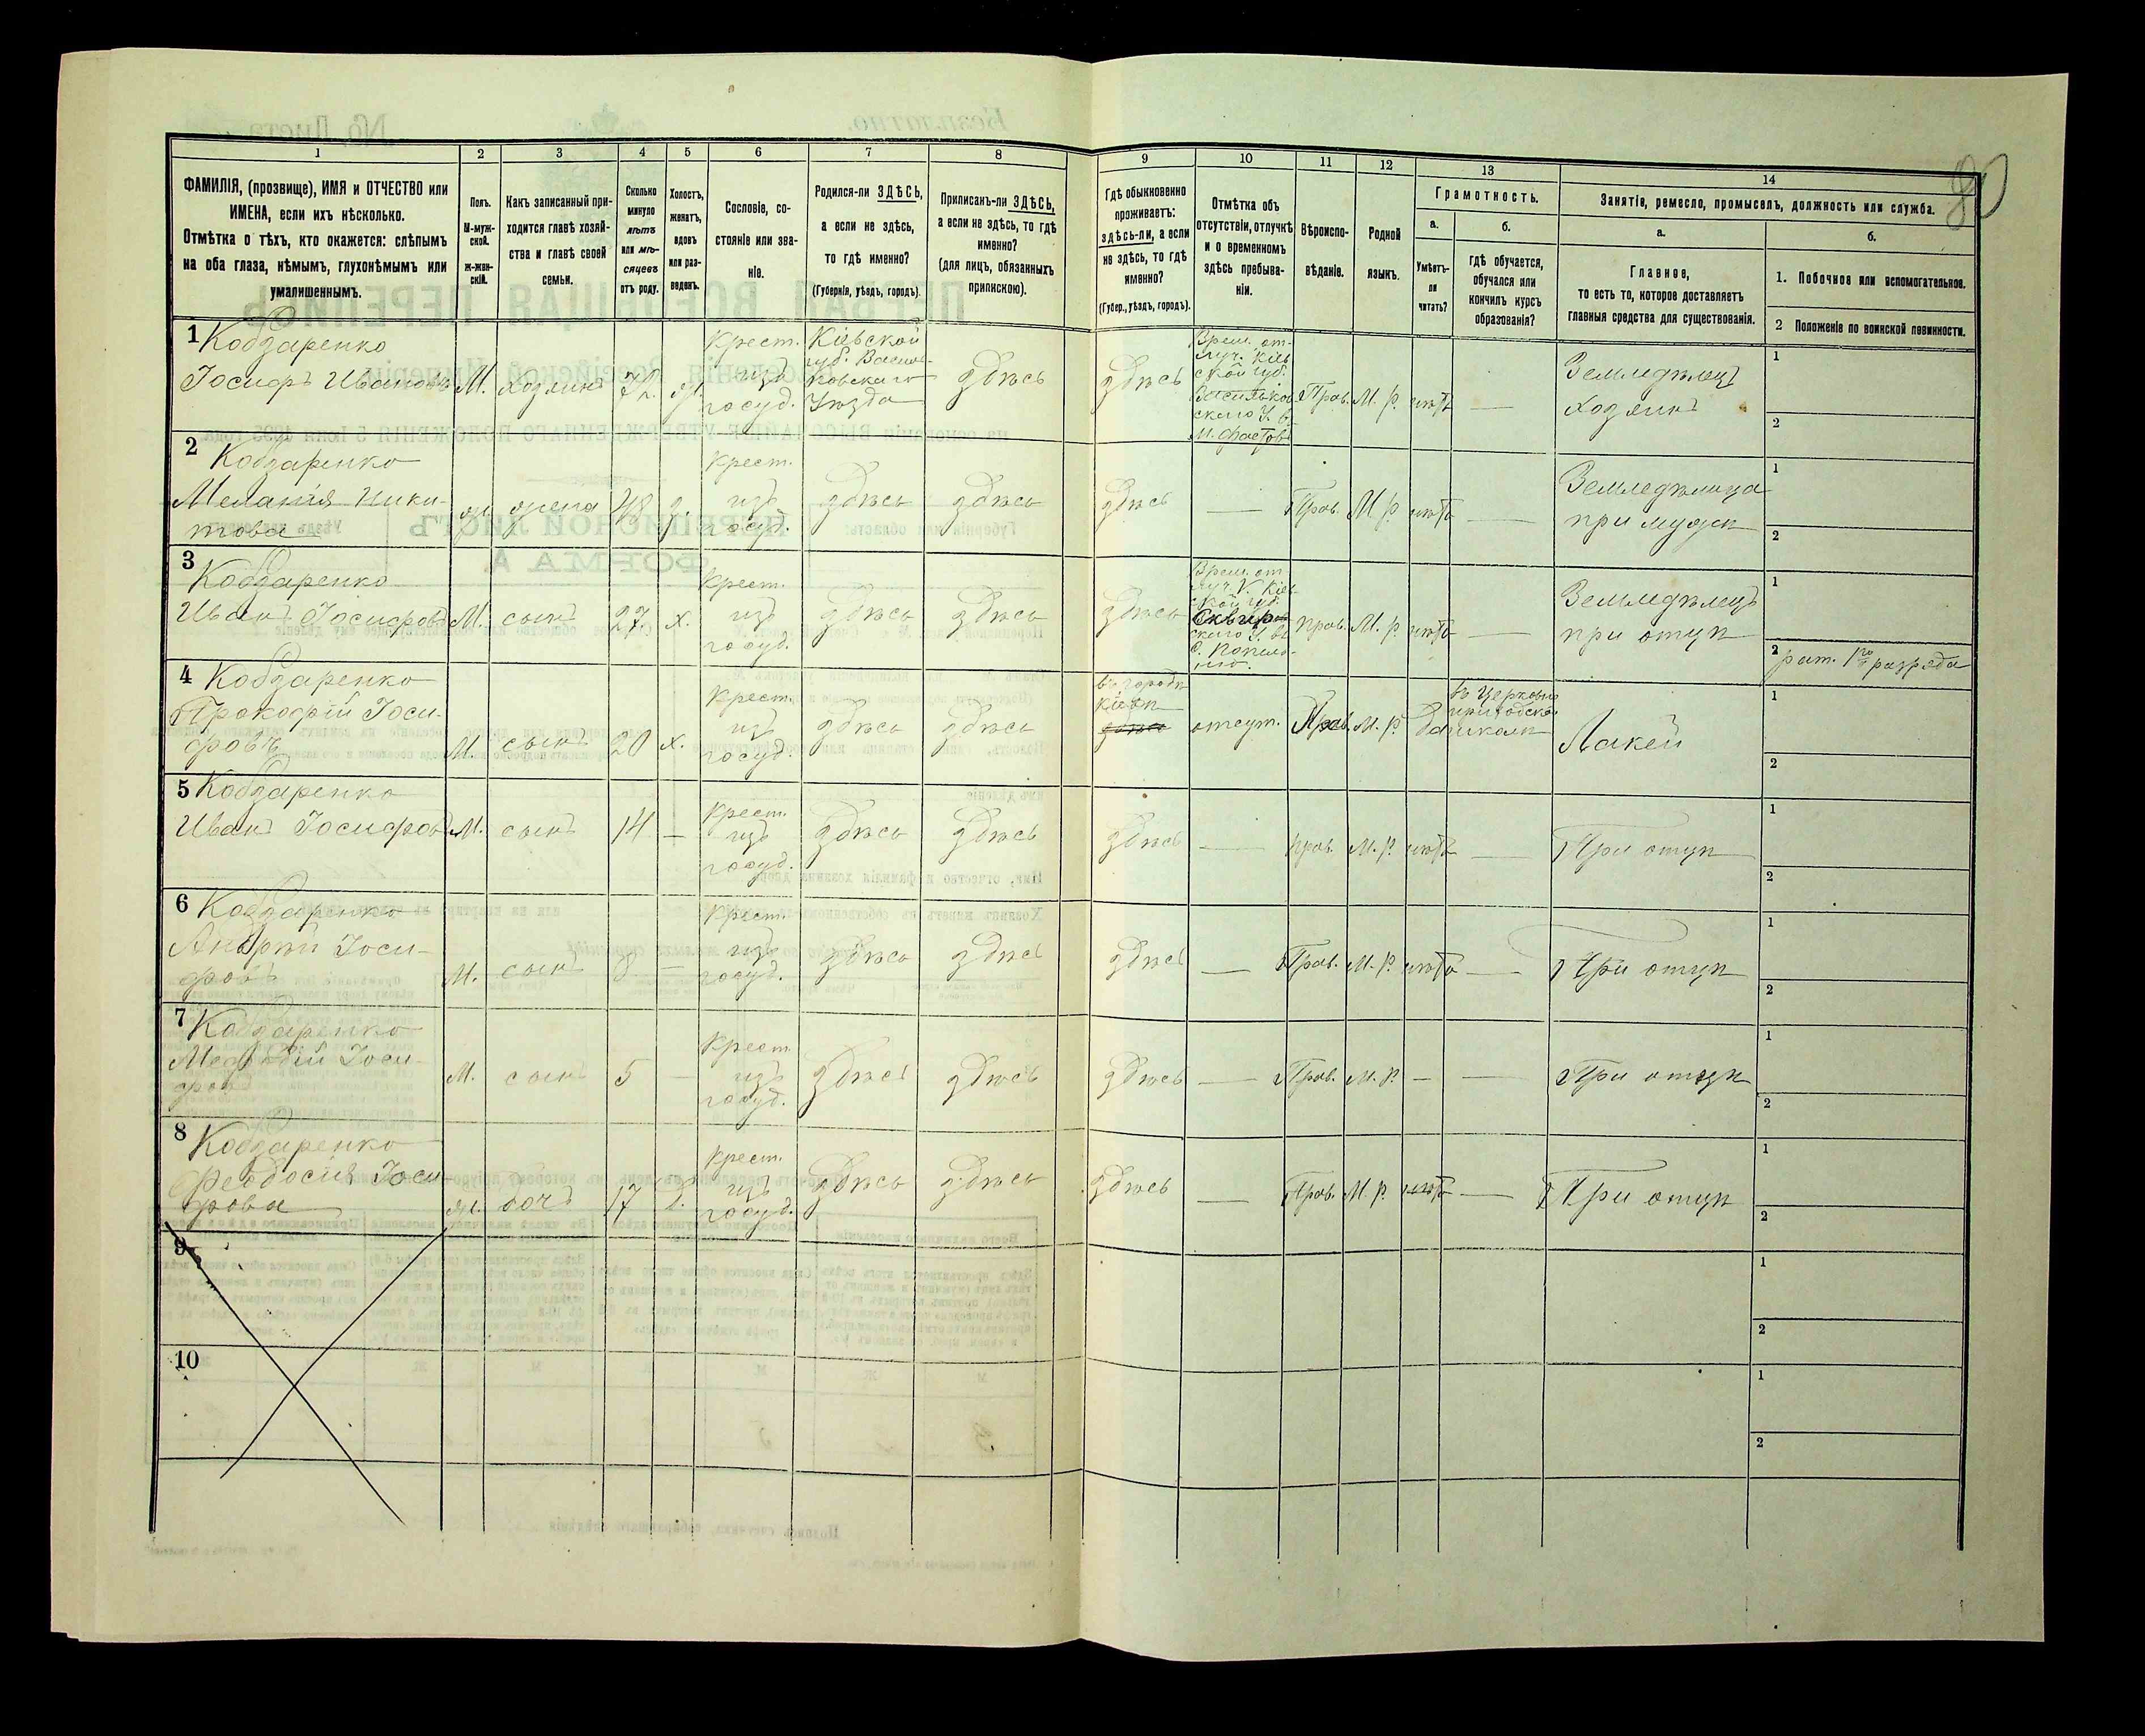 80
1
2
3
4
5
6
7
8
9
10
11
12
13
14
ФАМИЛІЯ, (прозвище), ИМЯ и ОТЧЕСТВО или
ИМЕНА, если ихъ нѣсколько.
Отмѣтка о тѣхъ, кто окажется: слѣпымъ
на оба глаза, нѣмымъ, глухонѣмымъ или
умалишеннымъ.
Полъ.
М-муж-
ской.
ж-жен-
скій.
Какъ записанный при-
ходится главѣ хозяй-
ства и главѣ своей
семьи.
Сколько
минуло
лѣтъ
или мѣ-
сяцевъ
отъ роду.
Холостъ,
женатъ,
вдовъ
или раз-
веденъ.
Сословіе, со-
стояніе или зва-
ніе.
Родился-ли ЗДѢСЬ,
а если не здѣсь,
то гдѣ именно?
(Губернія, уѣздъ, городъ).
Приписанъ-ли ЗДѢСЬ,
а если не здѣсь, то гдѣ
именно?
(для лицъ, обязанныхъ
припискою).
Гдѣ обыкновенно
проживаетъ:
здѣсь-ли, а если
не здѣсь, то гдѣ
именно?
(Губер., уѣздъ, городъ).
Отмѣтка объ
отсутствіи, отлучкѣ
и о временномъ
здѣсь пребыва-
ніи.
Вѣроиспо-
вѣданіе.
Родной
языкъ.
Грамотность.
а.
Умѣетъ-
ли
читать?
б.
гдѣ обучается,
обучался или
кончилъ курсъ
образованія?
Занятіе, ремесло, промыселъ, должность или служба.
а.
Главное,
то есть то, которое доставляетъ
главныя средства для существованія.
б.
1. Побочное или вспомогательное.
2 Положеніе по воинской повинности.
1 Кобзаренко
Іосифъ Ивановъ
М.
хозяинъ
Крест.
изъ
госуд.
Кіевской
губ. Василь-
ковскаго
Уѣзда
здѣсь
здѣсь
Врем. от-
луч. Кіев-
ской губ.
Васильков-
скаго У. в
м. Фастовъ
Прав.
М. р.
нѣтъ
—
Земледѣлецъ
хозяинъ
1
2
2 Кобзаренко
Меланія Ники-
това
ж
жена
48
з.
крест.
изъ
госуд.
здѣсь
здѣсь
здѣсь
—
Прав.
М р.
нѣтъ
—
Земледѣлица
при мужѣ
1
2
3 Кобзаренко
Иванъ Іосифовъ
М.
сынъ
27
х.
крест.
изъ
госуд.
здѣсь
здѣсь
здѣсь
Врем. от
луч. Кіев-
ской губ.
Сквир-
скаго У. въ
прав.
М. р.
нѣтъ
—
Земледѣлецъ
при отцѣ
1
2 рат. 1го разряда
4 Кобзаренко
Прокофій Іоси-
фовъ
М.
сынъ
20
х.
Крест.
изъ
госуд.
здѣсь
здѣсь
въ городѣ
Кіевѣ
здѣсь
отсут.
Прав.
М. р.
Да
въ Церковно
приходской
школѣ
Лакей
1
2
5 Кобзаренко
Иванъ Іосифовъ
М.
сынъ
14
—
крест.
изъ
госуд.
здѣсь
здѣсь
здѣсь
—
прав.
М. р.
нѣтъ
—
При отцѣ
1
2
6 Кобзаренко
Андрѣй Іоси-
фовъ
М.
сынъ
8
—
крест.
изъ
госуд.
здѣсь
здѣсь
здѣсь
—
Прав.
М. р.
нѣтъ
—
При отцѣ
1
2
7 Кобзаренко
Мефодій Іоси-
фовъ
М.
сынъ
5
—
крест
изъ
госуд.
здѣсь
здѣсь
здѣсь
—
Прав.
М. р.
—
—
При отцѣ
1
2
8 Кобзаренко
Феодосія Іоси-
фова
ж.
дочь
17
крест.
изъ
госуд.
здѣсь
здѣсь
здѣсь
—
Прав.
М. р.
нѣтъ
—
При отцѣ
1
2
9
1
2
10
1
2